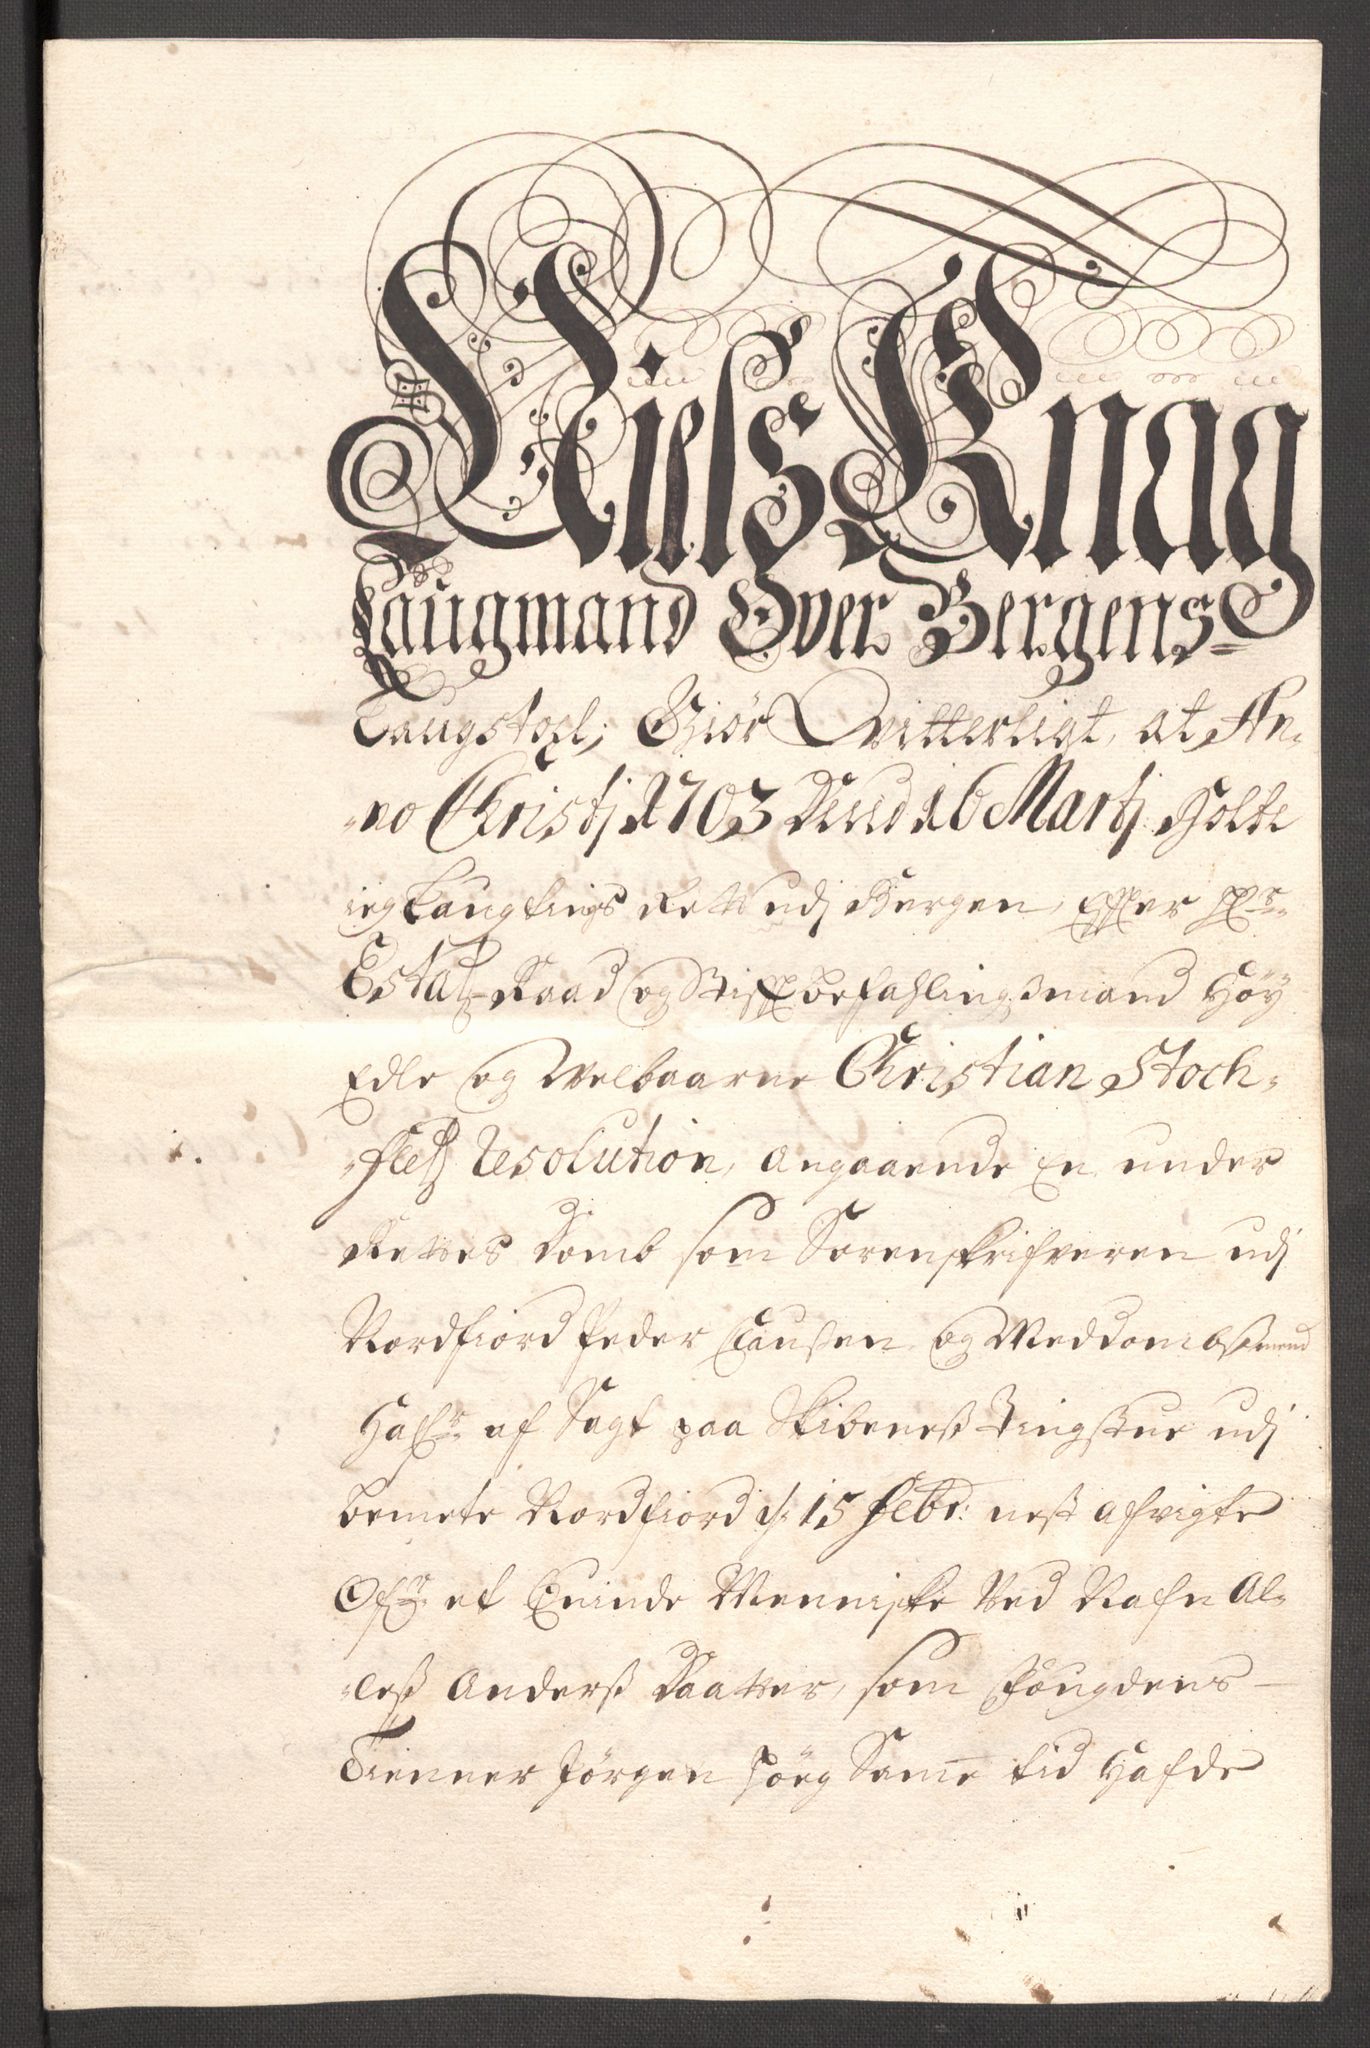 Niels Knag
Laugmand Over Bergens
Laugstoel; Giör Vitterligt, at An-
-no Christj 1703 Dend 16 Martj Holte
ieg Laugtings Rett udj Bergen, Efter
Estatz-Raad og Stiftbefahlingsmand Höy
Edle og Velbaarne Christian Stoch-
-fletz Resolution, angaaende En under
Rettes Domb som Sorenskrifveren udj
Nordfiord Peder Claussen og Meddombsmend
Hafr af Sagt paa Skibeness Tingstue udj
bemete Nordfiord d: 15 Febr: nest afvigte
Ofr et Quinde Menniske Ved Nafn Al-
-less Anderss Daatter, som Fougdens
Tienner Jörgen Förg Same tid Hafde